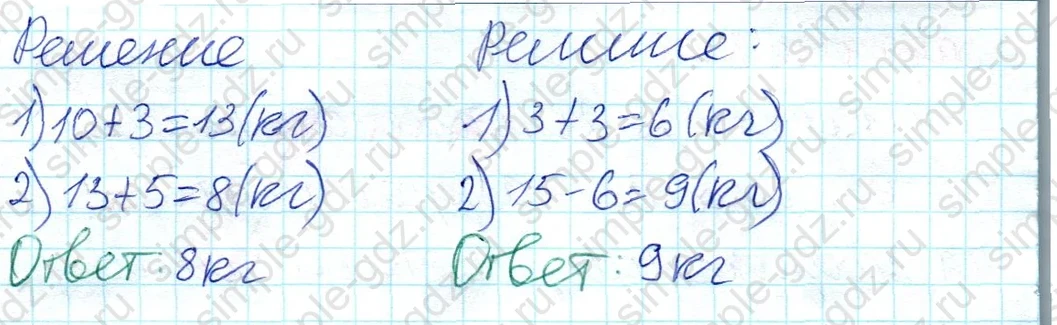 Решение
1) 10+3=13(кг)
2) 13+5=8(кг)
Ответ: 8кг
Решение:
1) 3+3=6(кг)
2) 15-6=9(кг)
Ответ: 9кг
simple-gdz.ru